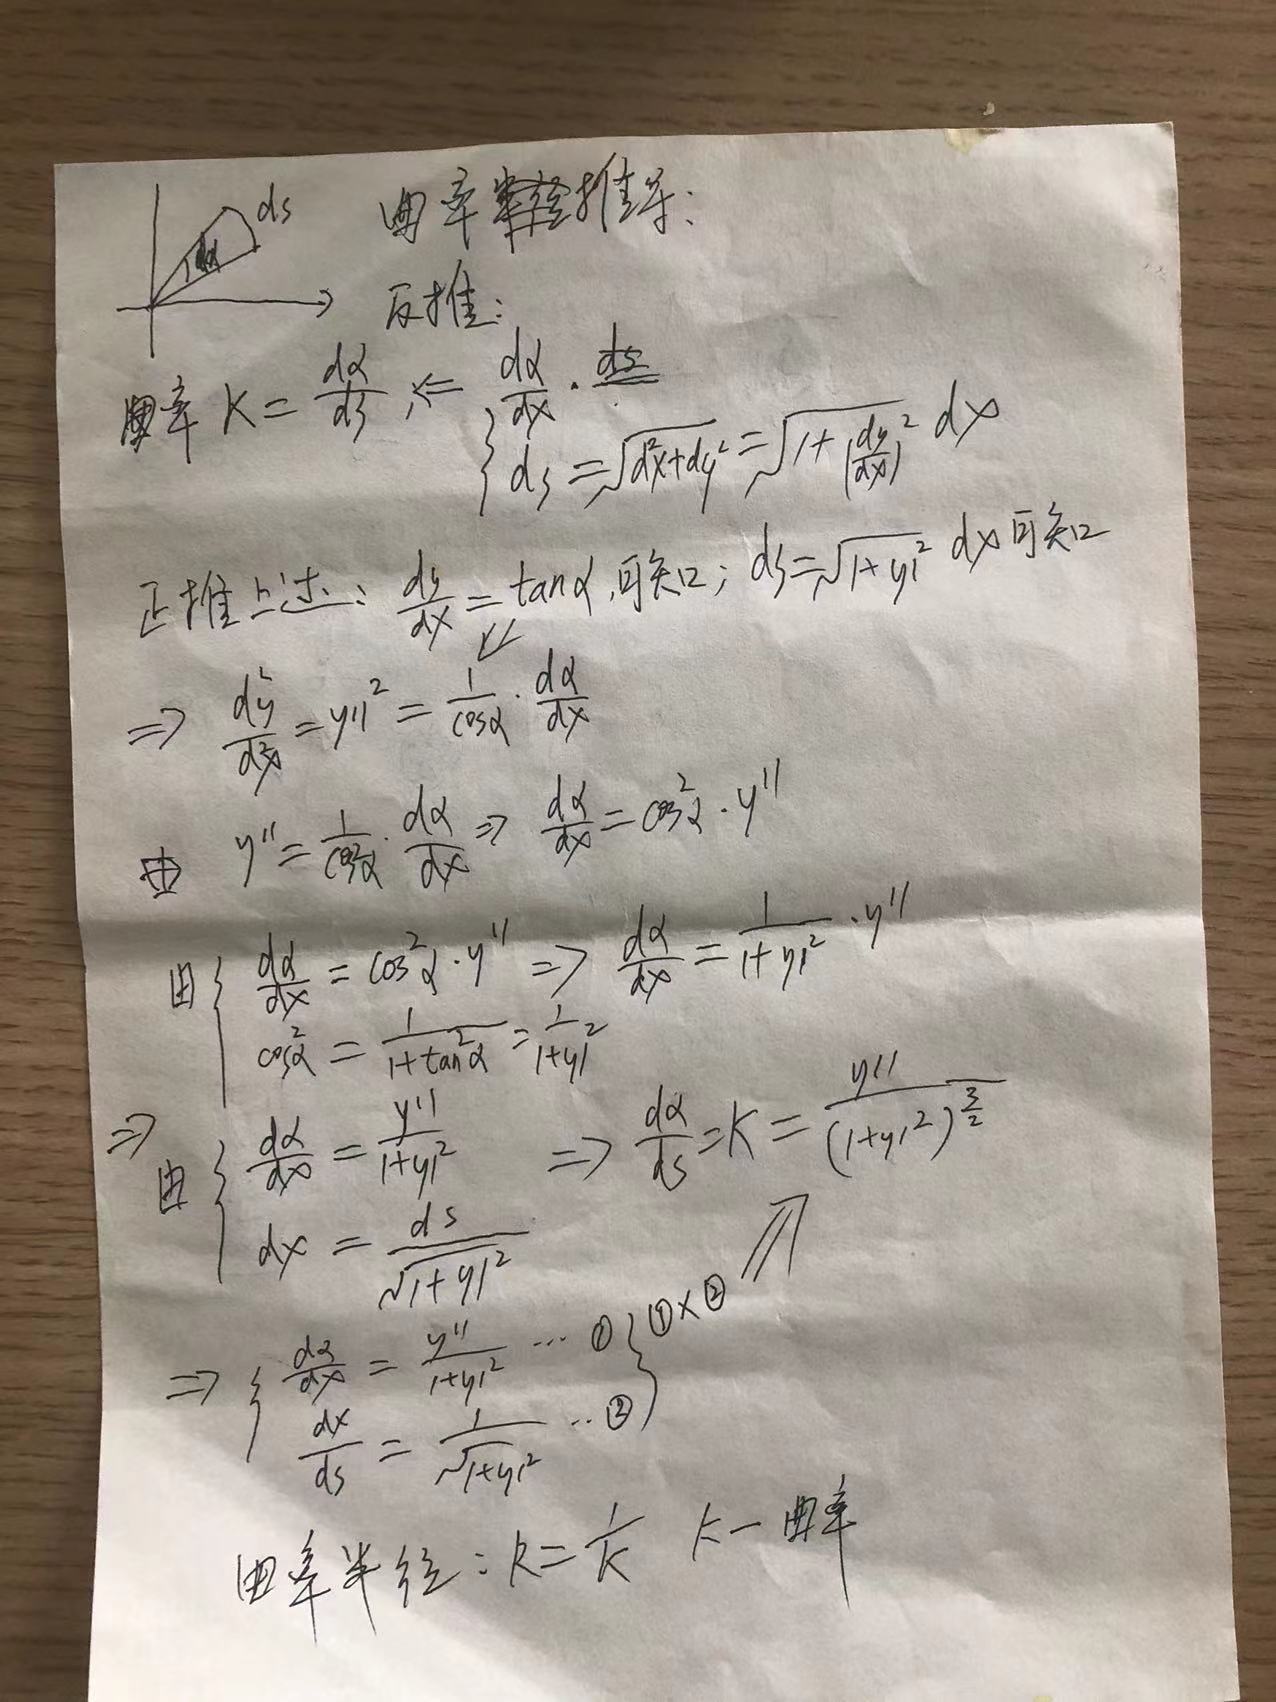 ds
dα
曲率推导:
反推:
曲率 K = dα/ds, ⇐ { dα/dx ·
ds = √(d²x+dy²) = √(1+(dy/dx)²) dx
正推上述: dy/dx = tanα, 可知; ds = √(1+y'²) dx 可知
⇒ d²y/d²x = y''² = 1/cosα · dα/dx
y'' = 1/cos²α · dα/dx ⇒ dα/dx = cos²α · y''
由 { dα/dx = cos²α · y'' ⇒ dα/dx = 1/(1+y'²) · y''
cos²α = 1/(1+tan²α) = 1/(1+y'²)
⇒ 由 { dα/dx = y''/(1+y'²) ⇒ dα/ds = K = y''/(1+y'²)^(3/2)
dx = ds/√(1+y'²)
⇒ { dα/dx = y''/(1+y'²) ... ① } ①×②
dx/ds = 1/√(1+y'²) ... ②
曲率半径: R = 1/K K—曲率